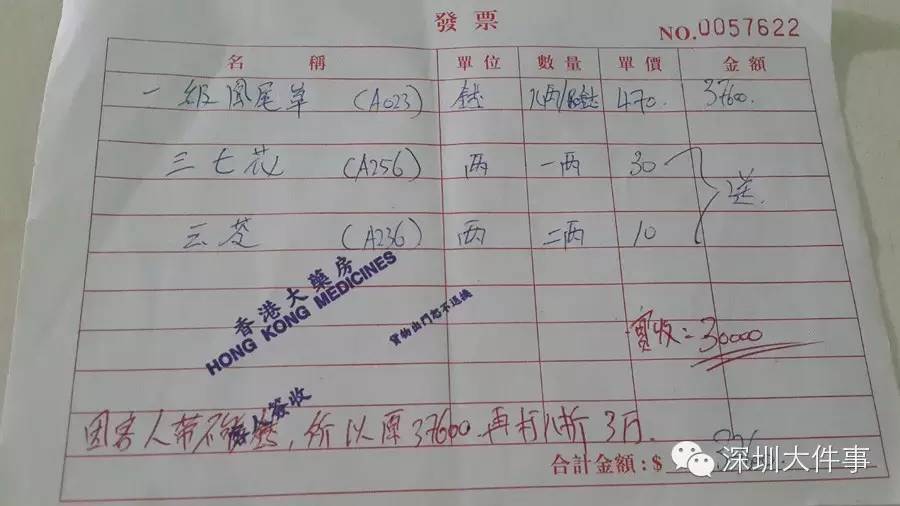 發票
NO.0057622
名稱 單位 數量 單價 金額
一级凤尾草 (A023) 錢 八両/80錢 470. 37600.
三七花 (A256) 両 一両 30
送.
云苓 (A236) 両 二両 10
香港大藥房
HONG KONG MEDICINES
貨物出門恕不退換
實收=30000
簽收
因客人带不够錢,所以原37600再打八折 3万.
合計金額:$
深圳大件事